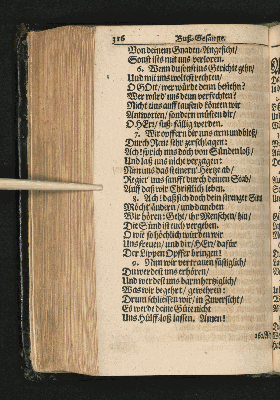 316 Buß-Gesänge.
Von deinem Gnaden-Angesicht/
Sonst ists mit uns verloren.
6. Wenn du sonst ins Gerichte gehn/
Und mit uns woltest rechten/
O GOtt/ wer würde denn bestehn?
Wer würd' uns denn verfechten?
Nicht eins auff tausend könten wir
Antworten/ sondern müsten dir/
O HErr/ fuß-fällig werden.
7. Wir opffern dir uns arm und bloß/
Durch Reue sehr zerschlagen:
Ach! sprich uns doch von Sünden loß/
Und laß uns nicht verzagen:
Nim uns das steinern' Hertze ab/
Regier' uns sanfft durch deinen Stab/
Auff daß wir Christlich leben.
8. Ach! daß sich doch dein strenger Sinn
Möcht ändern/ und daneben
Wir hören: Geht/ ihr Menschen/ hin/
Die Sünd ist euch vergeben.
O wie so höchlich würden wir
Uns freuen/ und dir/ HErr/ dafür
Der Lippen Opffer bringen!
9. Nun wir vertrauen festiglich/
Du werdest uns erhören/
Und werdest uns barmhertziglich/
Was wir begehrt/ gewehren:
Drum schliessen wir/ in Zuversicht/
Es werde deine Güte nicht
Uns Hülff-loß lassen. Amen!